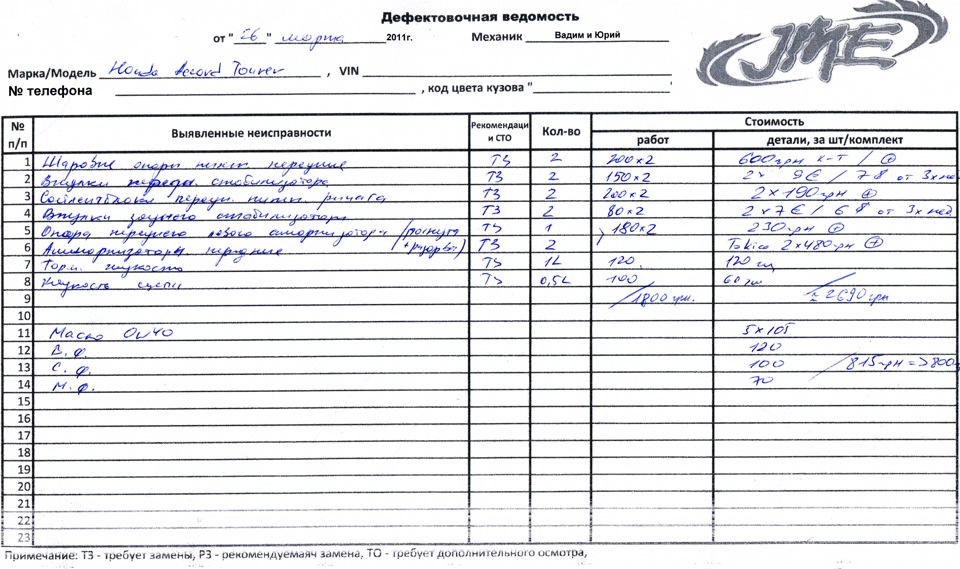 Дефектовочная ведомость
от " 26 " марта 2011г. Механик Вадим и Юрий
JME
Марка/Модель Honda Accord Tourer , VIN
№ телефона , код цвета кузова "
№ п/п Выявленные неисправности Рекомендаци и СТО Кол-во Стоимость
работ детали, за шт/комплект
1 Шаровые опоры нижн. передние ТЗ 2 200x2 600грн к-т /
2 Втулки передн. стабилизатора ТЗ 2 150x2 2x 9€ / 7$ от 3х нед
3 Сайлентблоки передн. нижн. рычага ТЗ 2 200x2 2x190грн
4 Втулки заднего стабилизатора ТЗ 2 80x2 2x7€ / 6$ от 3х нед
5 Опора переднего левого амортизатора ТЗ 1 180x2 230грн
6 Амортизаторы передние ТЗ 2 Tokico 2x480грн
7 Торм. жидкость ТЗ 1L 120 120
8 Жидкость сцепл ТЗ 0,5L 100 60
9 /1800грн. ≈2690грн
10
11 Масло 0w40 5x105
12 В.ф. 120
13 С.ф. 100 /815грн=>800
14 М.ф. 70
15
16
17
18
19
20
21
22
23
Примечание: ТЗ - требует замены, РЗ - рекомендуемаяч замена, ТО - требует дополнительного осмотра,